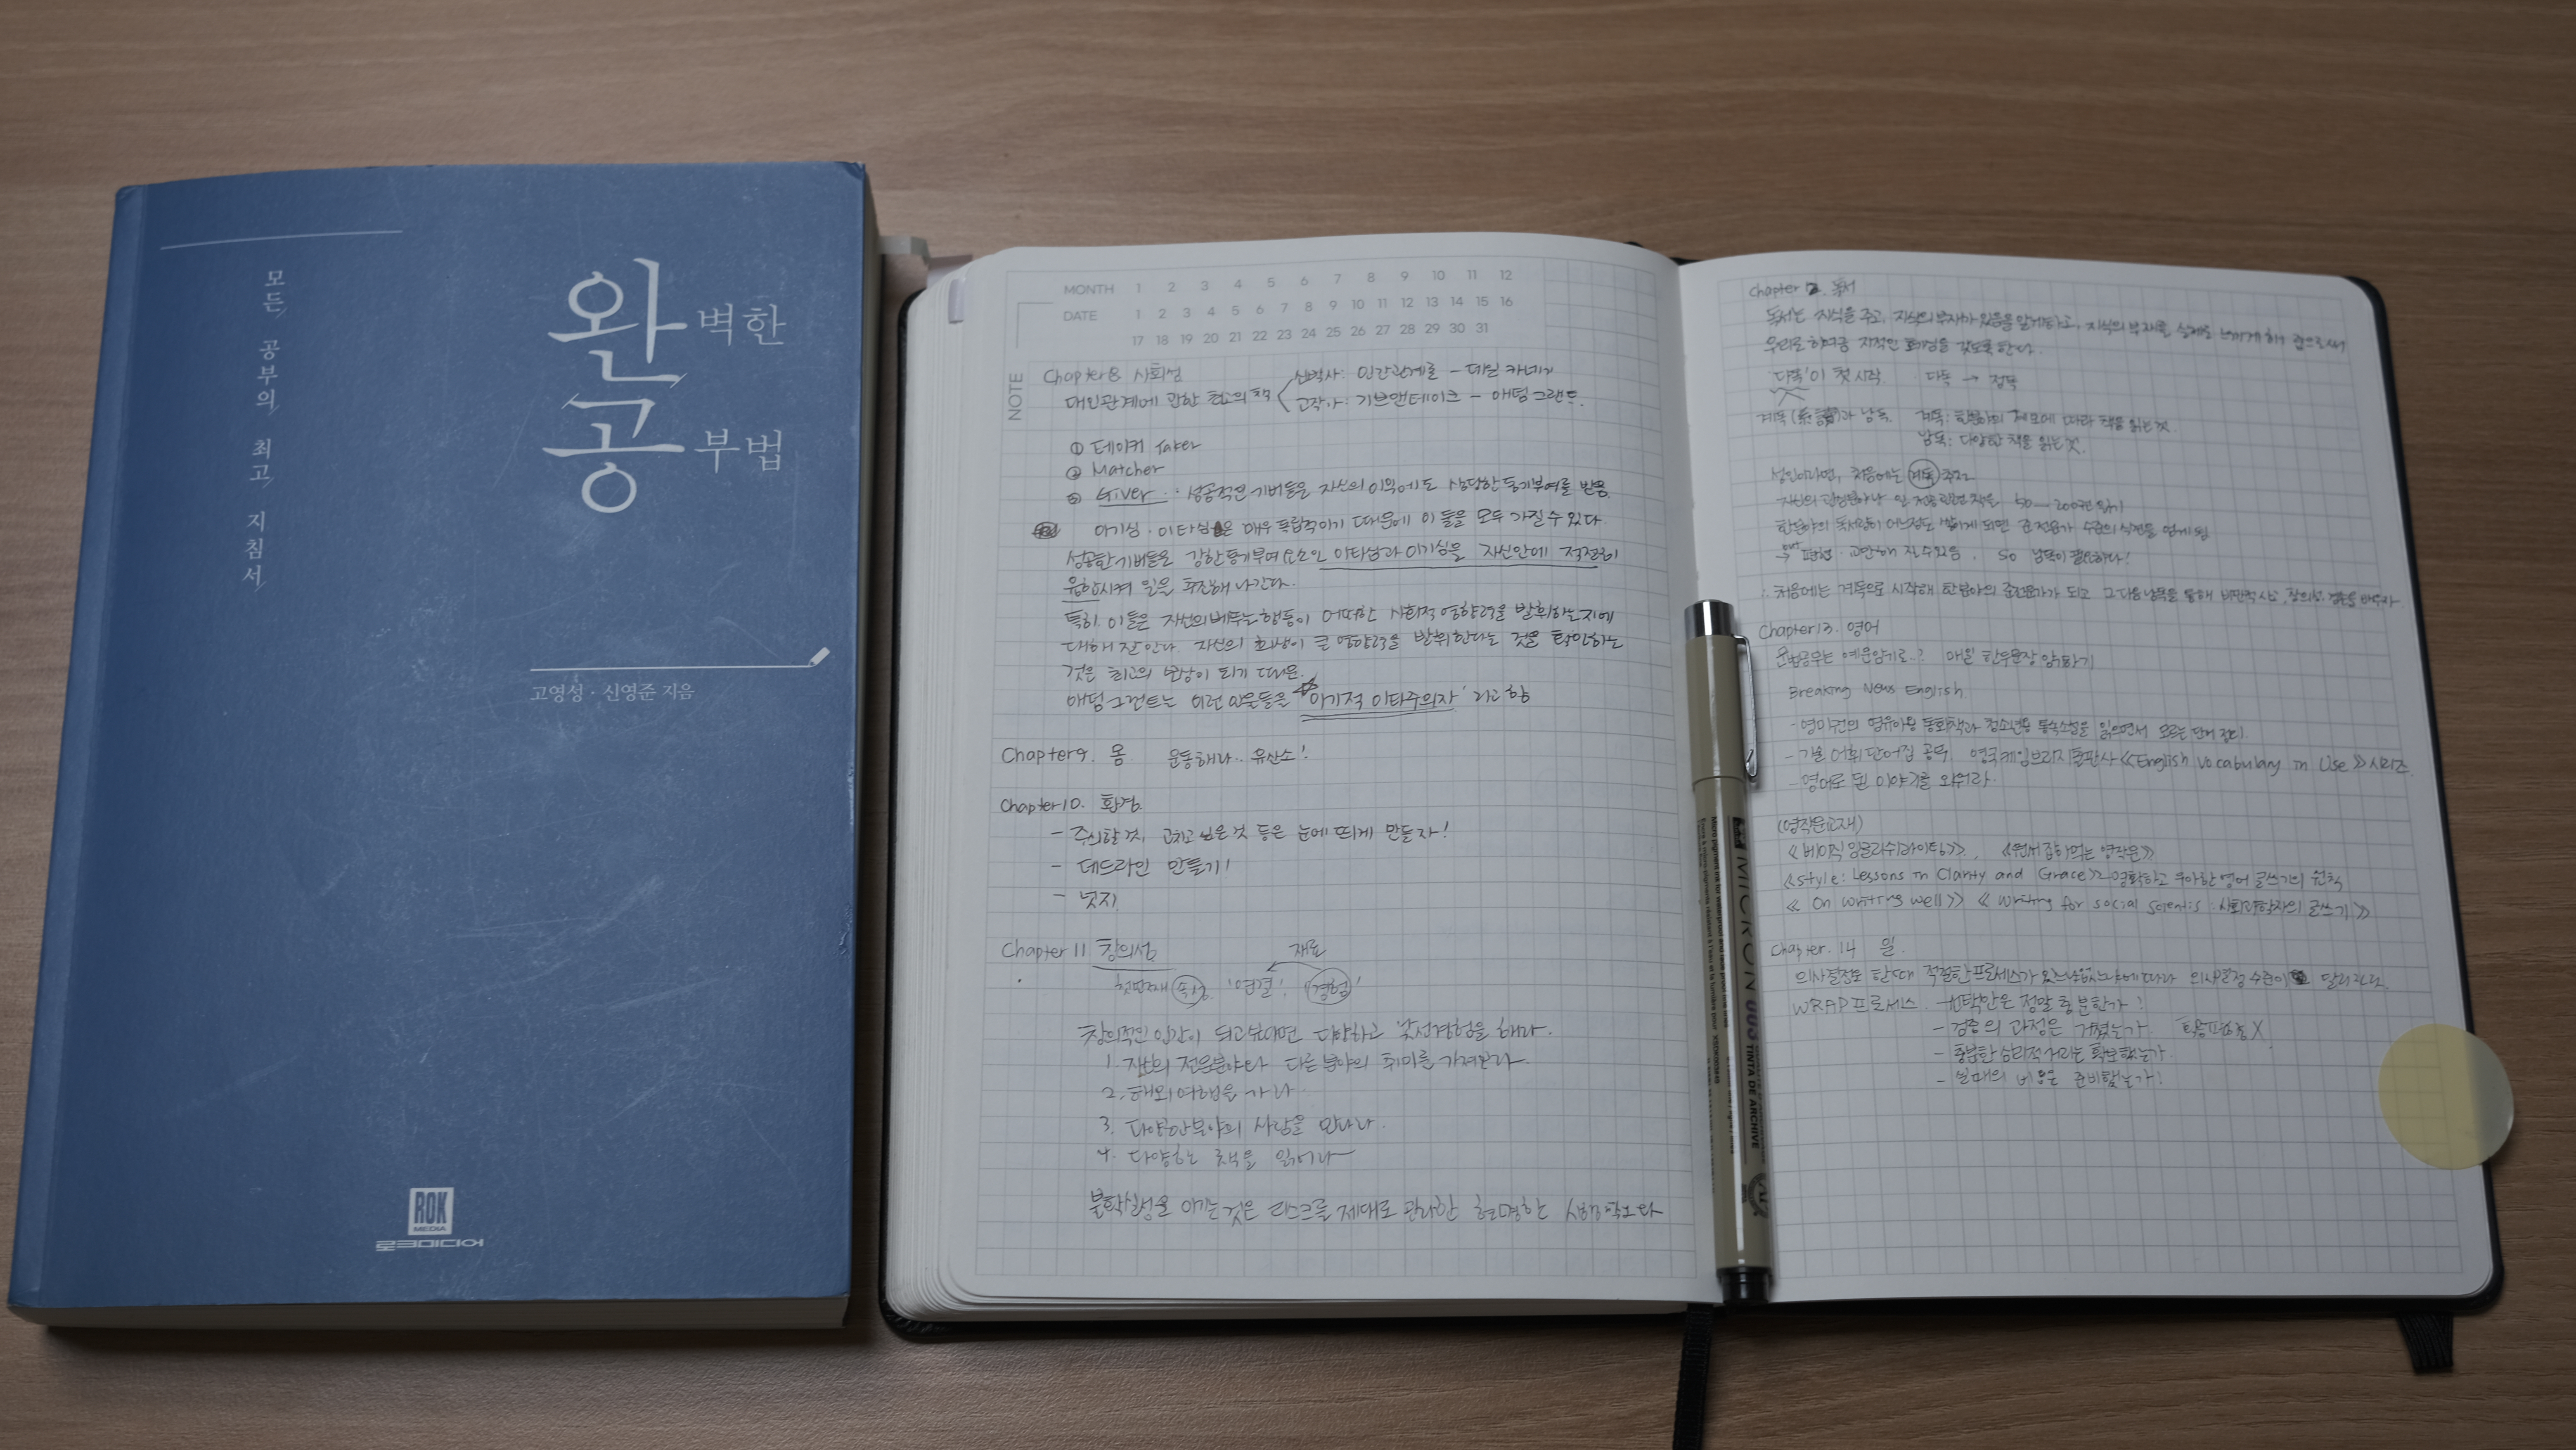 모든 공부의 최고 지침서
완벽한
공부법
고영성 · 신영준 지음
ROK
MEDIA
로크미디어
MONTH 1 2 3 4 5 6 7 8 9 10 11 12
DATE 1 2 3 4 5 6 7 8 9 10 11 12 13 14 15 16
17 18 19 20 21 22 23 24 25 26 27 28 29 30 31
NOTE
Chapter 8 사회성
대인관계에 관한 최고의 책
신박사: 인간관계론 - 데일 카네기
고작가: 기브앤테이크 - 애덤 그랜트.
① 테이커 Taker
② Matcher
③ Giver : 성공적인 기버들은 자신의 이익에도 상당한 동기부여를 받음.
이기심 · 이타심은 매우 독립적이기 때문에 이 둘을 모두 가질 수 있다.
성공한 기버들은 강한 동기부여 요소인 이타심과 이기심을 자신안에 적절히
융합시켜 일을 추진해 나간다.
특히 이들은 자신의 베푸는 행동이 어떠한 사회적 영향력을 발휘하는지에
대해 잘 안다. 자신의 희생이 큰 영향력을 발휘한다는 것을 확인하는
것은 최고의 보상이 되기 때문.
애덤 그랜트는 이런 인물들을 '이기적 이타주의자' 라고 함
Chapter 9. 몸 운동해라.. 유산소!
Chapter 10. 환경.
- 주의할 것, 고치고 싶은 것 등은 눈에 띄게 만들자!
- 데드라인 만들기!
- 넛지
Chapter 11 창의성
재료
첫번째 속성 '연결' '경험'
창의적인 인간이 되고 싶다면 다양하고 낯선 경험을 해라.
1. 자신의 전문분야와 다른 분야의 취미를 가져본다.
2. 해외여행을 가라
3. 다양한 분야의 사람을 만나라.
4. 다양한 책을 읽어라
불확실성을 이기는 것은 리스크를 제대로 관리한 현명한
Chapter 12. 독서
독서는 지식을 주고, 지식의 부재가 있음을 알게하고, 지식의 부재를 실제로 느끼게 해 줌으로써
우리로 하여금 지적인 호기심을 갖도록 한다.
'다독'이 첫 시작 다독 → 정독
계독 과 남독. 계독: 한분야의 계보에 따라 책을 읽는 것.
남독: 다양한 책을 읽는 것.
성인이라면, 처음에는 계독 추천
자신의 관심분야나 일 관련 책을 50 ~ 200권 읽기
한분야의 독서량이 어느정도 쌓이게 되면 준전문가 수준의 식견을 얻게 됨
→ but 편협 · 교만해 질 수 있음. So 남독이 필요하다!
∴ 처음에는 계독으로 시작해 한 분야의 준전문가가 되고 그 다음 남독을 통해 비판적 사고, 창의성
Chapter 13. 영어
문법공부는 예문암기로..? 매일 한두문장 암기하기
Breaking News English
- 영미권의 영유아용 동화책과 청소년용 통속소설을 읽으면서 모르는 단어 정리.
- 기출 어휘 단어집 공부. 영국 케임브리지 출판사 《English Vocabulary in Use》 시리즈.
- 영어로 된 이야기를 외워라.
(영작문교재)
《베이직 잉글리쉬 라이팅》, 《원서 잡아먹는 영작문》
《Style: Lessons in Clarity and Grace》 명확하고 우아한 영어 글쓰기의 원칙
《On writing well》 《Writing for social scientis : 사회과학자의 글쓰기》
Chapter. 14 일.
의사결정을 할 때 적절한 프로세스가 있느냐 없느냐에 따라 의사결정 수준이 달라진다.
WRAP 프로세스 - 선택안은 정말 충분한가?
- 검증의 과정은 거쳤는가
- 충분한 심리적 거리는 확보했는가
- 실패의 비용은 준비했는가!
MICRON 005
TINTA DE ARCHIVE